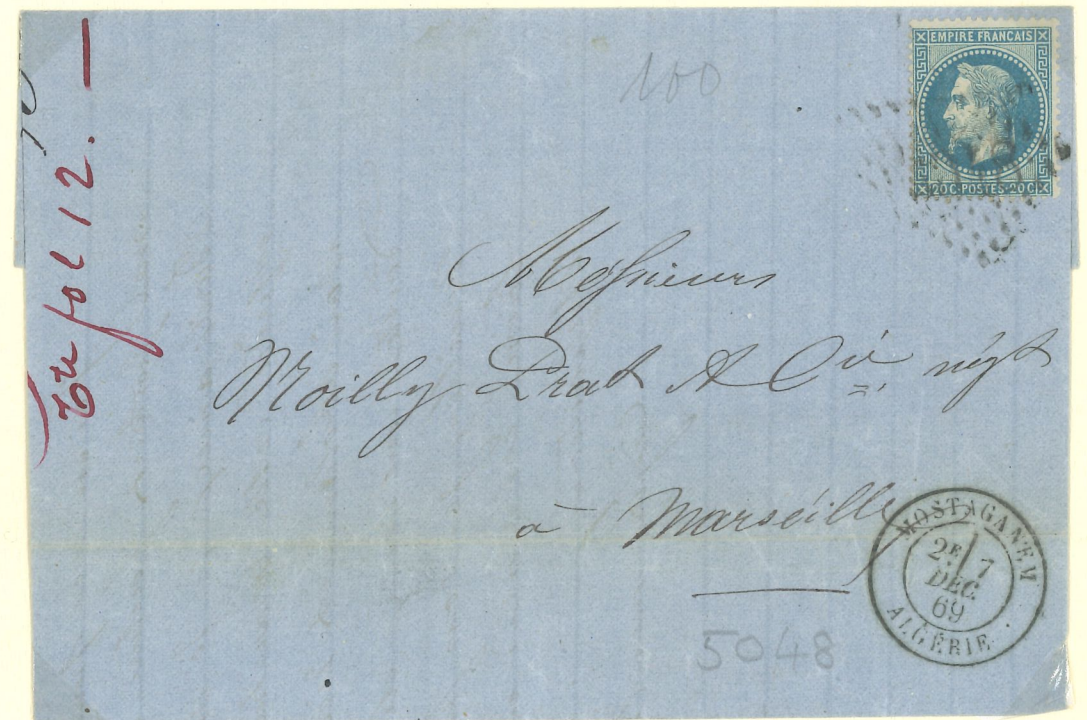 100
EMPIRE FRANÇAIS
20C·POSTES·20C
Messieurs
Noilly Prat & Cie négt
à Marseille
MOSTAGANEM
2E 7
DEC.
69
ALGÉRIE
5048
fol 12. —